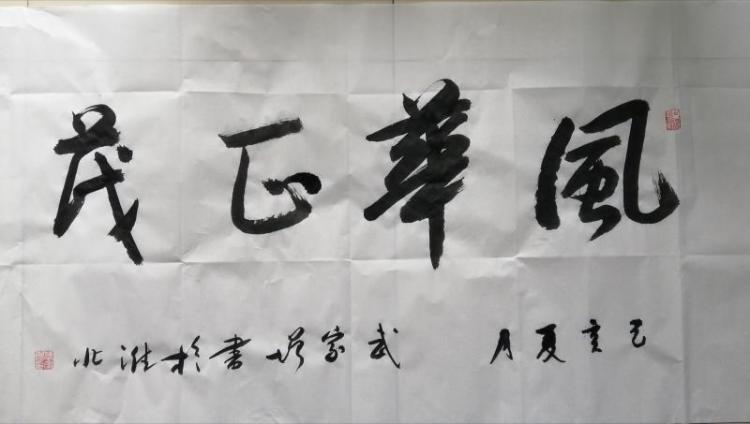 風華正茂
己亥夏月 武家坤書於淮北